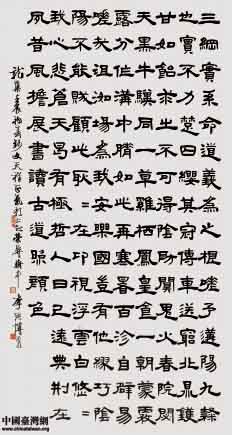 三綱實系命道義為之根嗟予遘陽九隸
也實不力楚囚纓其冠傳車送窮北鼎鑊
甘如飴求之不可得陰房闐鬼火春院閟
天黑牛驥同一皂雞棲鳳凰食一朝蒙霧
露分作溝中瘠如此再寒暑百沴自辟易
嗟哉沮洳場為我安樂國豈有他繆巧陰
陽不能賊顧此耿耿在仰視浮雲白悠悠
我心悲蒼天曷有極哲人日已遠典荊在
夙昔風檐展書讀古道照顏色
文天祥正氣歌
中國臺灣網
www.chinataiwan.org